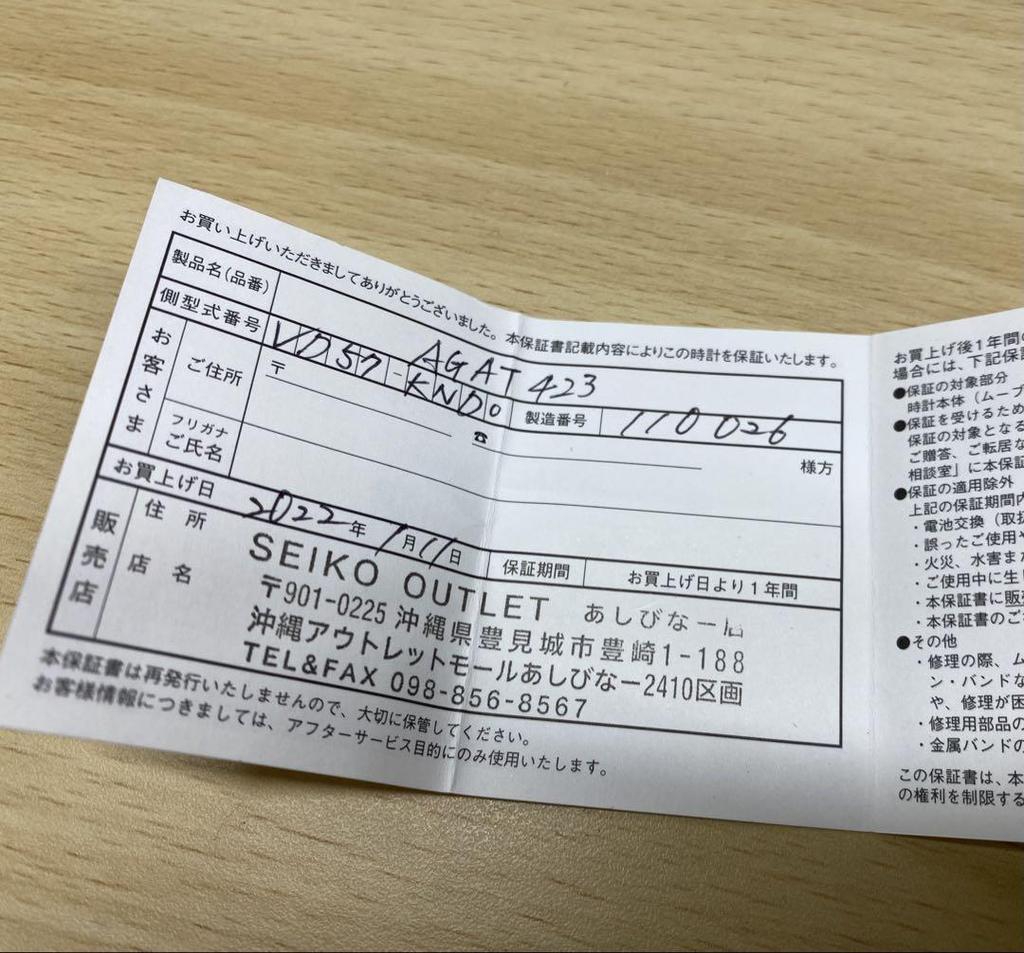 お買い上げいただきましてありがとうございました。本保証書記載内容によりこの時計を保証いたします。
製品名(品番) AGAT423
側型式番号 VD57-KND0 製造番号 110026
お客さま
ご住所 〒
☎
様方
フリガナ
ご氏名
お買上げ日 2022年1月11日 保証期間 お買上げ日より1年間
販売店
住所
店名
SEIKO OUTLET あしびなー店
〒901-0225 沖縄県豊見城市豊崎1-188
沖縄アウトレットモールあしびなー2410区画
TEL&FAX 098-856-8567
本保証書は再発行いたしませんので、大切に保管してください。
お客様情報につきましては、アフターサービス目的にのみ使用いたします。
お買上げ後1年間の
場合には、下記保
●保証の対象部分
時計本体（ムーブ
●保証を受けるため
保証の対象となる
ご贈答、ご転居な
相談室」に本保証
●保証の適用除外
上記の保証期間内
・電池交換（取扱
・誤ったご使用や
・火災、水害また
・ご使用中に生じ
・本保証書に販売
・本保証書のご
●その他
・修理の際、ム
ン・バンドな
や、修理が困
・修理用部品の
・金属バンドの
この保証書は、本
の権利を制限する